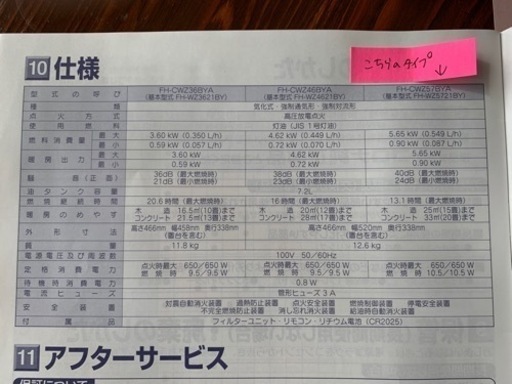 こちらのタイプ↓
10 仕様
型式の呼び FH-CWZ36BYA (基本型式 FH-WZ3621BY) FH-CWZ46BYA (基本型式 FH-WZ4621BY) FH-CWZ57BYA (基本型式 FH-WZ5721BY)
種類 気化式・強制通気形・強制対流形
点火方式 高圧放電点火
使用燃料 灯油 (JIS 1号灯油)
燃料消費量 最大 3.60 kW (0.350 L/h) 4.62 kW (0.449 L/h) 5.65 kW (0.549 L/h)
最小 0.59 kW (0.057 L/h) 0.72 kW (0.070 L/h) 0.90 kW (0.087 L/h)
暖房出力 最大 3.60 kW 4.62 kW 5.65 kW
最小 0.59 kW 0.72 kW 0.90 kW
騒音(正面) 36dB (最大燃焼時) 38dB (最大燃焼時) 40dB (最大燃焼時)
21dB (最小燃焼時) 23dB (最小燃焼時) 24dB (最小燃焼時)
油タンク容量 7.2L
燃焼継続時間 20.6 時間 (最大燃焼時) 16 時間 (最大燃焼時) 13.1 時間 (最大燃焼時)
暖房のめやす 木造 16.5㎡(10畳)まで 木造 20㎡(12畳)まで 木造 25㎡(15畳)まで
コンクリート 21.5㎡(13畳)まで コンクリート 28㎡(17畳)まで コンクリート 33㎡(20畳)まで
外形寸法 高さ466mm 幅458mm 奥行338mm (置台を含む) 高さ466mm 幅520mm 奥行338mm (置台を含む)
質量 11.8 kg 12.6 kg
電源電圧及び周波数 100V 50/60Hz
定格消費電力 点火時最大 650/650 W 点火時最大 650/650 W 点火時最大 650/650 W
燃焼時 9.5/9.5 W 燃焼時 9.5/9.5 W 燃焼時 10.5/10.5 W
待機時消費電力 0.8 W
電流ヒューズ 管形ヒューズ 3 A
安全装置 対震自動消火装置 過熱防止装置 点火安全装置 燃焼制御装置 停電安全装置
不完全燃焼防止装置 消し忘れ消火装置 給油時自動消火装置
付属品 フィルターユニット・リモコン・リチウム電池 (CR2025)
11 アフターサービス
保証について